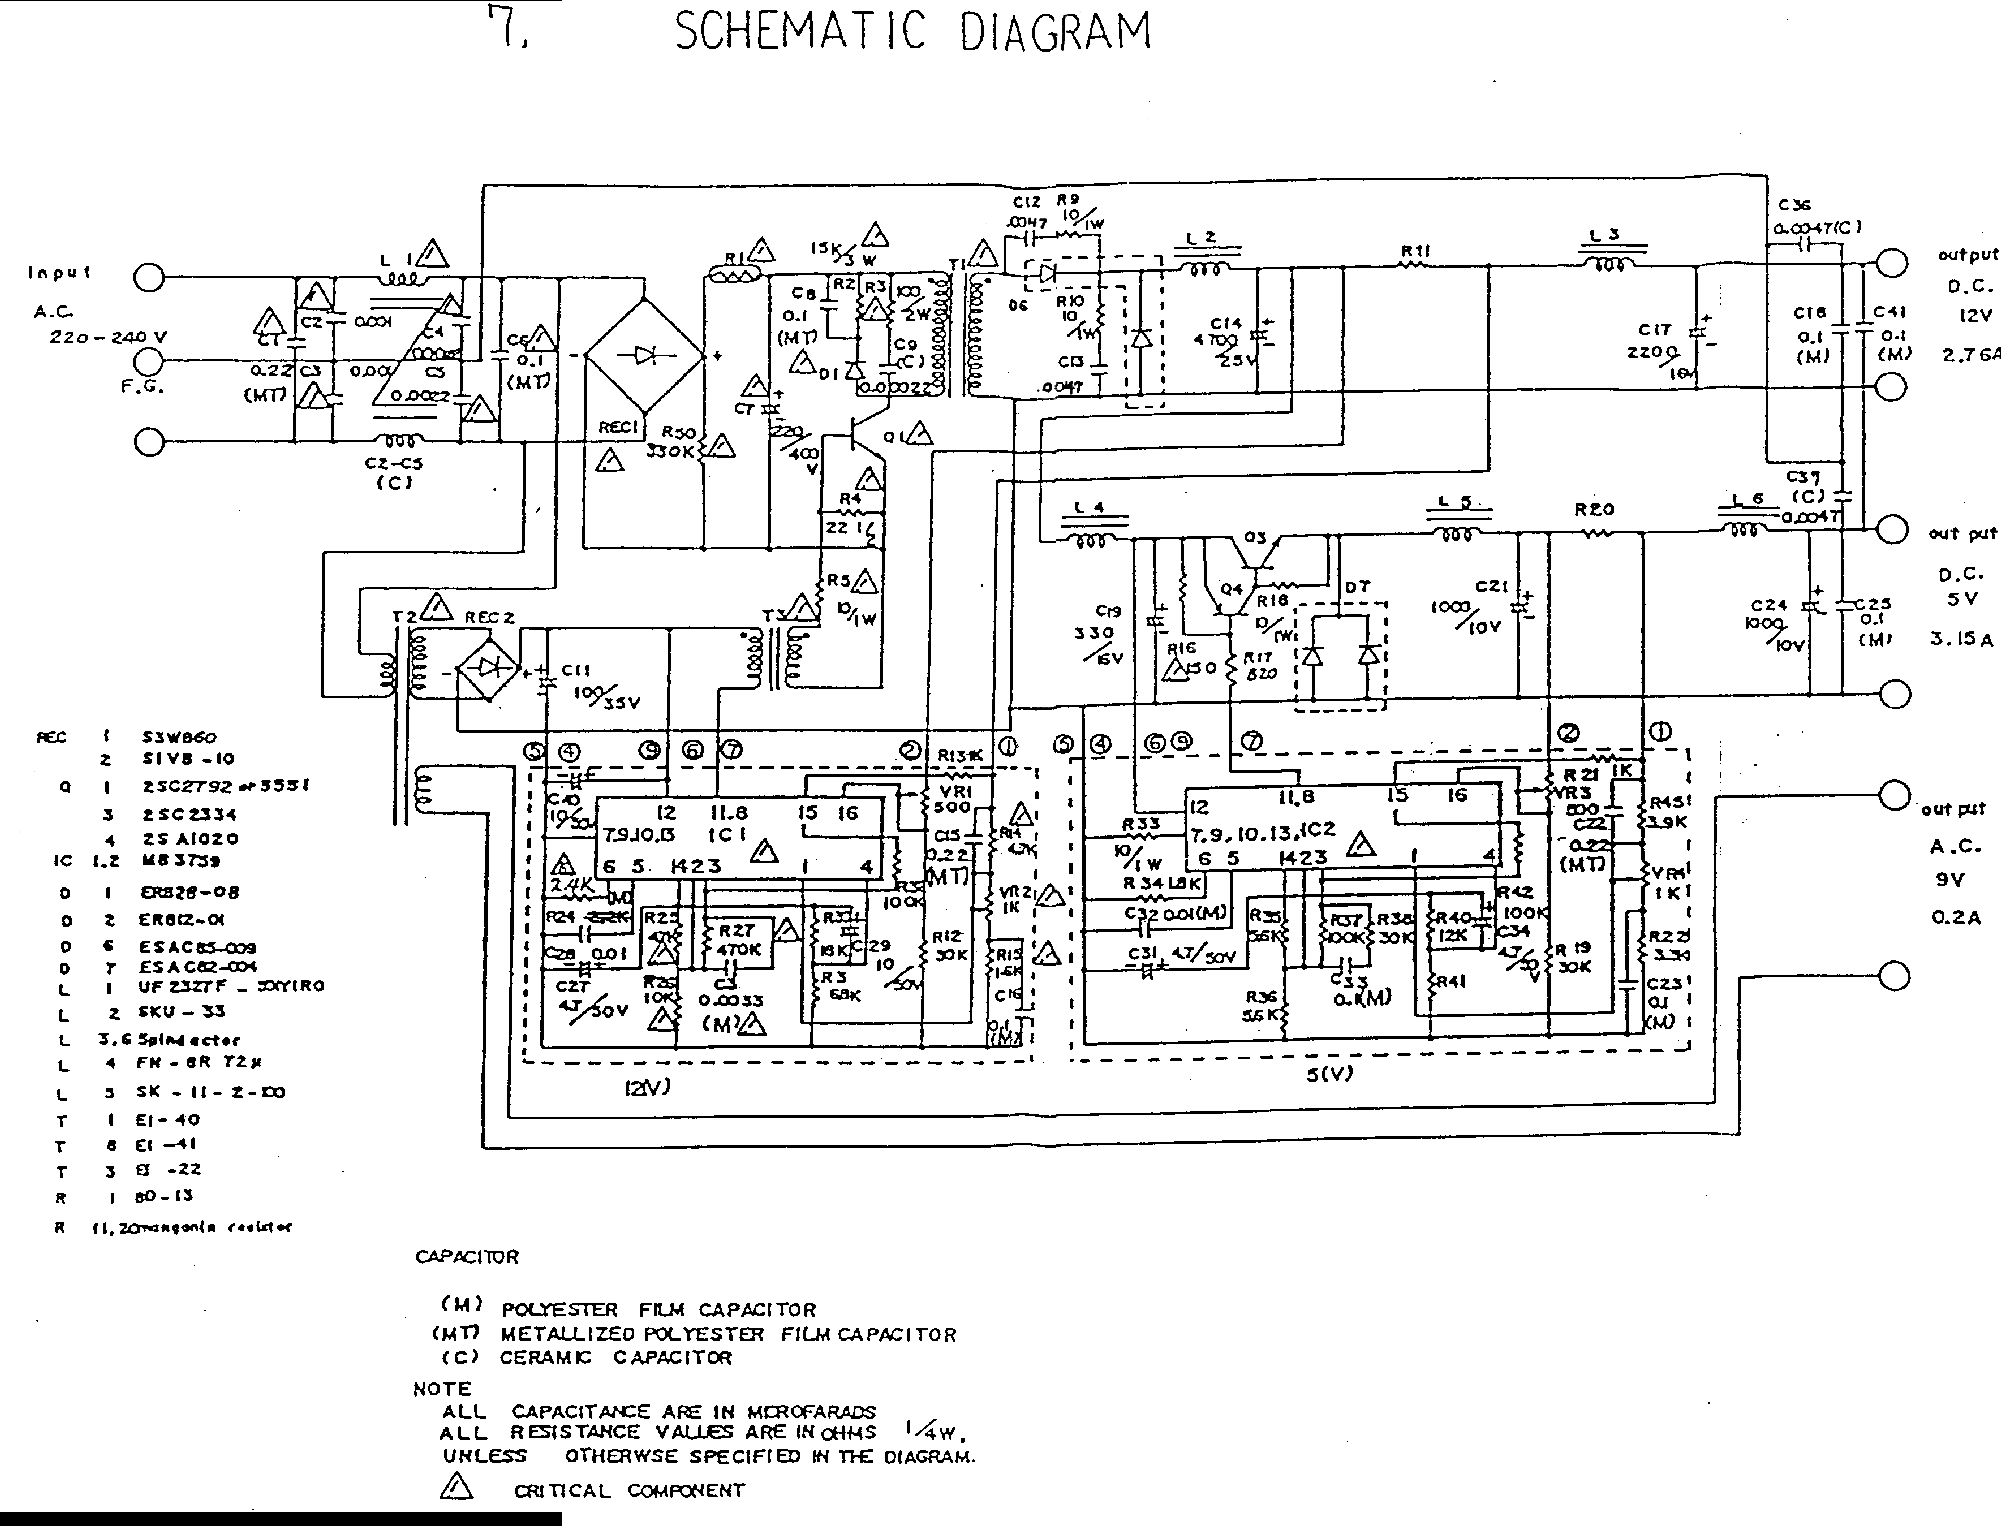 7. SCHEMATIC DIAGRAM
Input
A.C.
220-240 V
F.G.
L 1
C1
0.22
(MT)
C2
0.001
C3
0.001
C4
C5
0.0022
C2-C5
(C)
C6
0.1
(MT)
REC1
R1
R50
330K
C7
220/400V
15K/3W
R2
C8
0.1
(MT)
R3
100/2W
D1
C9
(C)
0.00022
Q1
R4
22
R5
10/1W
T1
C12
.0047
R9
10/1W
D6
R10
10/1W
C13
.0047
L 2
C14
4700/25V
R11
L 3
C17
2200/16V
C36
0.0047(C)
C18
0.1
(M)
C41
0.1
(M)
output
D.C.
12V
2.76A
C37
(C)
0.0047
L 4
C19
330/16V
R16
150
Q3
Q4
R18
10/1W
R17
820
D7
L 5
C21
1000/10V
R20
L 6
C24
1000/10V
C25
0.1
(M)
out put
D.C.
5V
3.15A
T2
REC 2
C11
100/35V
T3
⑤ ④ ⑨ ⑥ ⑦ ② ①
⑤ ④ ⑥ ⑨ ⑦ ② ①
C40
10/50V
12 11.8 15 16
7,9,10,13 IC 1
6 5 14 2 3 1 4
R13 1K
VR1
500
C15
0.22
(MT)
R14
VR2
1K
2.4K
R24
(M)
C28 0.01
C27
4.7/50V
R25
47K
R26
10K
R27
470K
0.0033
(M)
18K
C29
10/50V
R3
68K
100K
R12
30K
R15
1.6K
C16
0.1
(M)
12(V)
12 11.8 15 16
7,9,10,13, IC2
6 5 14 2 3 1 4
R33
10/1W
R34 1.8K
C32 0.01(M)
C31 4.7/50V
R35
5.6K
R36
5.6K
R37
100K
R38
30K
C33
0.1(M)
R40
12K
R41
R42
100K
C34
4.7/50V
R19
30K
R21
1K
VR3
500
C22
0.22
(MT)
R45
3.9K
VR4
1K
R22
3.3K
C23
0.1
(M)
5(V)
out put
A.C.
9V
0.2A
REC 1 S3WB60
2 S1VB-10
Q 1 2SC2792 or 3551
3 2SC2334
4 2SA1020
IC 1.2 MB3759
D 1 ERB28-08
D 2 ERB12-01
D 6 ESAC85-009
D 7 ESAC82-004
L 1 UF2327F
L 2 SKU-33
L 3,6 Spinductor
L 4
L 5 SK-11-2-100
T 1 EI-40
T EI-41
T 3 EI-22
R 1 8D-13
R 11,20 manganin resistor
CAPACITOR
(M) POLYESTER FILM CAPACITOR
(MT) METALLIZED POLYESTER FILM CAPACITOR
(C) CERAMIC CAPACITOR
NOTE
ALL CAPACITANCE ARE IN MICROFARADS
ALL RESISTANCE VALUES ARE IN OHMS 1/4W,
UNLESS OTHERWSE SPECIFIED IN THE DIAGRAM.
CRITICAL COMPONENT